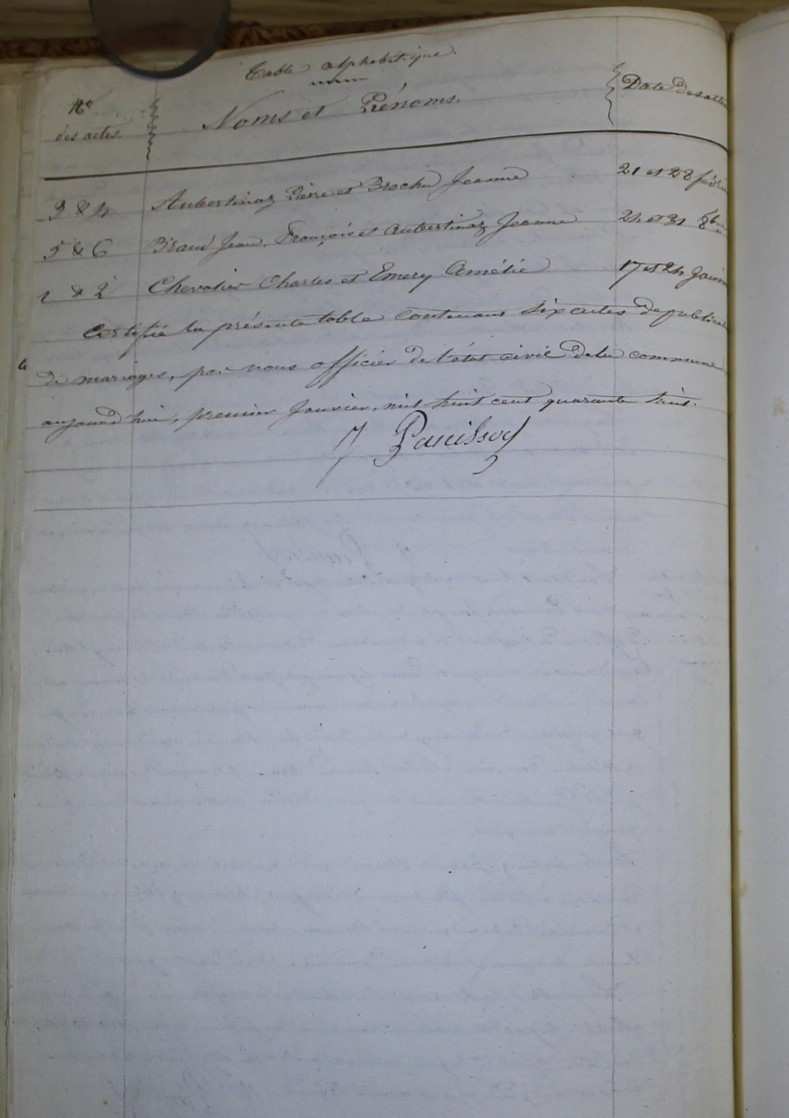 Table alphabétique.
Nos des actes. Noms et Prénoms. Date des actes
3 & 4 Aubertinaz Pierre et Brochu Jeanne 21 et 28 février
5 & 6 Braud Jean, François et Aubertinaz Jeanne 24 et 31 8bre
1 & 2 Chevalier Charles et Emery Amélie 17 et 24 Janvier
Certifié la présente table contenant six actes de publications
de mariages, par nous officier de l'état civil de la commune
aujourd'hui, premier Janvier, mil huit cent quarante huit.